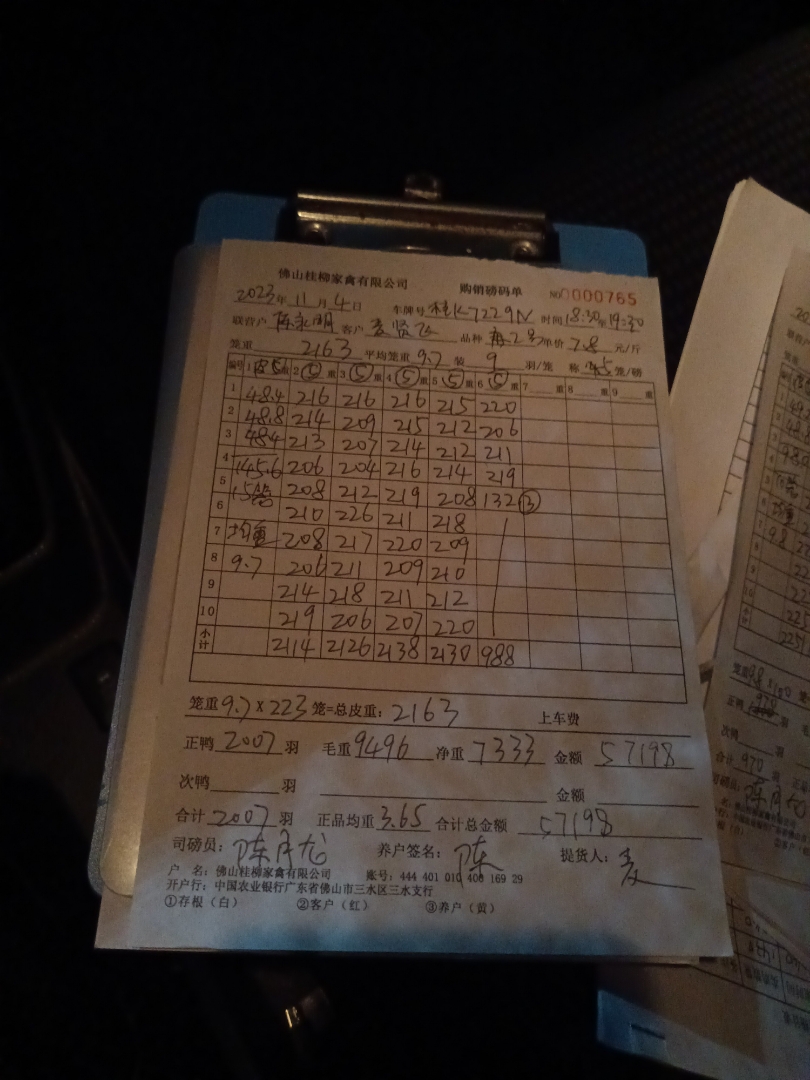 佛山桂柳家禽有限公司 购销磅码单 NO 0000765
2023年11月4日 车牌号 桂K7229N 时间 18:30至19:30
联营户 陈永明 客户 麦贤飞 品种 单价 7.8 元/斤
笼重 2163 平均笼重 9.7 装 9 羽/笼 称 5 笼/磅
编号 1 重 2 ⑤ 重 3 ⑤ 重 4 ⑤ 重 5 ⑤ 重 6 ⑤ 重 7 重 8 重 9 重
1 48.4 216 216 216 215 220
2 48.8 214 209 215 212 206
3 48.4 213 207 214 212 211
4 145.6 206 204 216 214 219
5 15笼 208 212 219 208 132 ③
6 210 226 211 218
7 均重 208 217 220 209
8 9.7 206 211 209 210
9 214 218 211 212
10 219 206 207 220
小计 2114 2126 2138 2130 988
笼重 9.7 X 223 笼=总皮重: 2163 上车费
正鸭 2007 羽 毛重 9496 净重 7333 金额 57198
次鸭 羽 金额
合计 2007 羽 正品均重 3.65 合计总金额 57198
司磅员: 陈月龙 养户签名: 陈 提货人: 麦
户 名: 佛山桂柳家禽有限公司 账号: 444 401 010 400 169 29
开户行: 中国农业银行广东省佛山市三水区三水支行
①存根（白） ②客户（红） ③养户（黄）